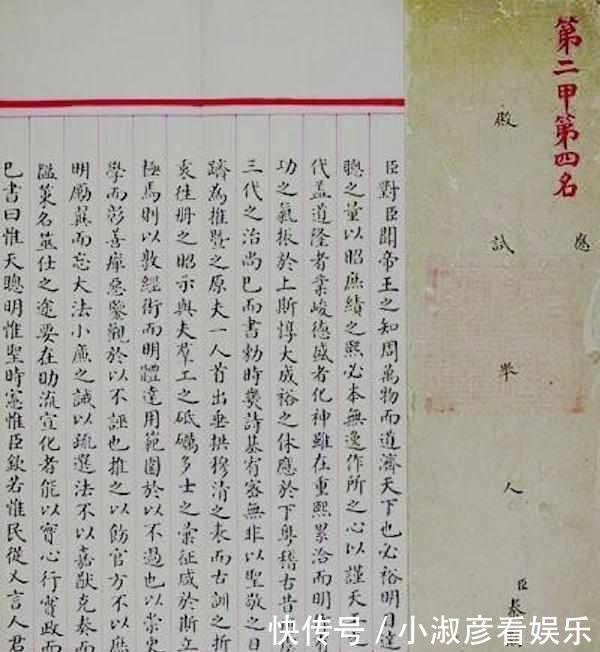 第二甲第四名
應
殿試舉人
臣蔡
臣對臣聞帝王之知周萬物而道濟天下也必裕明目達
聰之量以昭庶績之熙必本無逸作所之心以謹天
代蓋道隆者業峻德盛者化神雖在重熙累洽而明
功之氣振於上斯惇大成裕之休應於下粤稽古昔
三代之治尚已而書勑時幾詩基宥密無非以聖敬之日
躋為推暨之原夫一人首出垂拱穆清之表而古訓之折
衷往册之昭示與夫羣工之砥礪多士之彙征咸於斯立
極焉則以敦經術而明體達用範圍於以不過也以崇史
學而彰善癉惡鑒觀於以不誣也推之以飭官方不以庶
明勵翼而忘大法小廉之誡以疏選法不以嘉猷克奏而
濫策名筮仕之途要在助流宣化者能以實心行實政而
已書曰惟天聰明惟聖時憲惟臣欽若惟民從乂言人君
快传号/小淑彦看娱乐